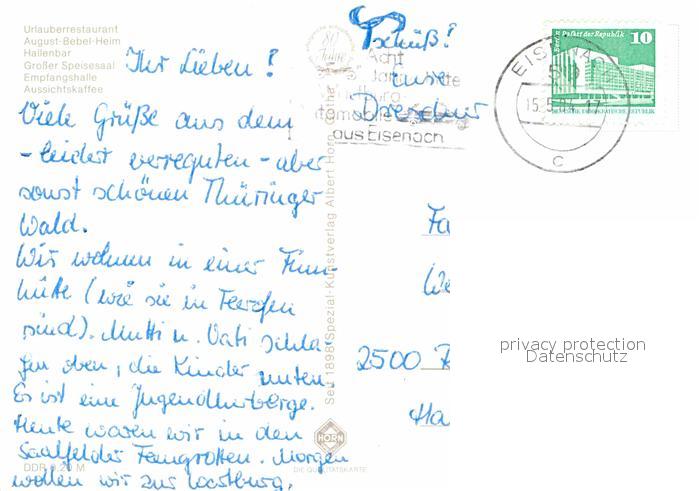 Urlauberrestaurant
August-Bebel-Heim
Hallenbar
Großer Speisesaal
Empfangshalle
Aussichtskaffee
Ihr Lieben!
Viele Grüße aus dem
- leider verregneten - aber
sonst schönen Thüringer
Wald.
Wir wohnen in einer Finn-
hütte (wie sie in
sind). Mutti u. Vati schla-
fen oben, die Kinder unten.
Es ist eine Jugendherberge.
Heute waren wir in den
Saalfelder Feengrotten. Morgen
wollen wir zur Wartburg.
DDR 0,20 M
Tschüß!
eure
Dresdner
80 Jahre
Acht
aus Eisenach
Seit 1898 Spezial-Kunstverlag Albert Horn Gotha
HORN
DIE QUALITÄTSKARTE
EISENACH
15.5.
17
C
Berlin, Palast der Republik
10
DEUTSCHE DEMOKRATISCHE REPUBLIK
Fa
We
2500 R
Ha
privacy protection
Datenschutz